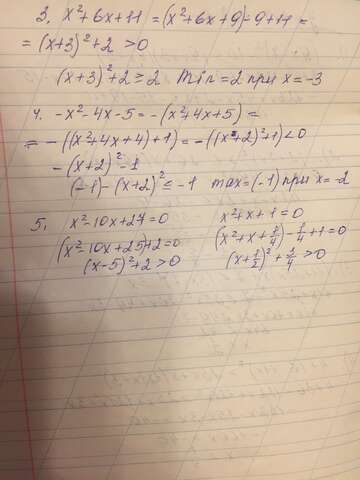 3. x²+6x+11 = (x²+6x+9)-9+11 =
= (x+3)²+2 >0
(x+3)²+2 ≥ 2 Min = 2 при x = -3
4. -x²-4x-5 = -(x²+4x+5) =
= -((x²+4x+4)+1) = -((x+2)²+1)<0
-(x+2)²-1
(-1)-(x+2)² ≤ -1 max = (-1) при x = -2
5. x²-10x+27=0 x²+x+1=0
(x²-10x+25)+2=0 (x²+x+1/4)-1/4+1=0
(x-5)²+2>0 (x+1/2)²+3/4>0